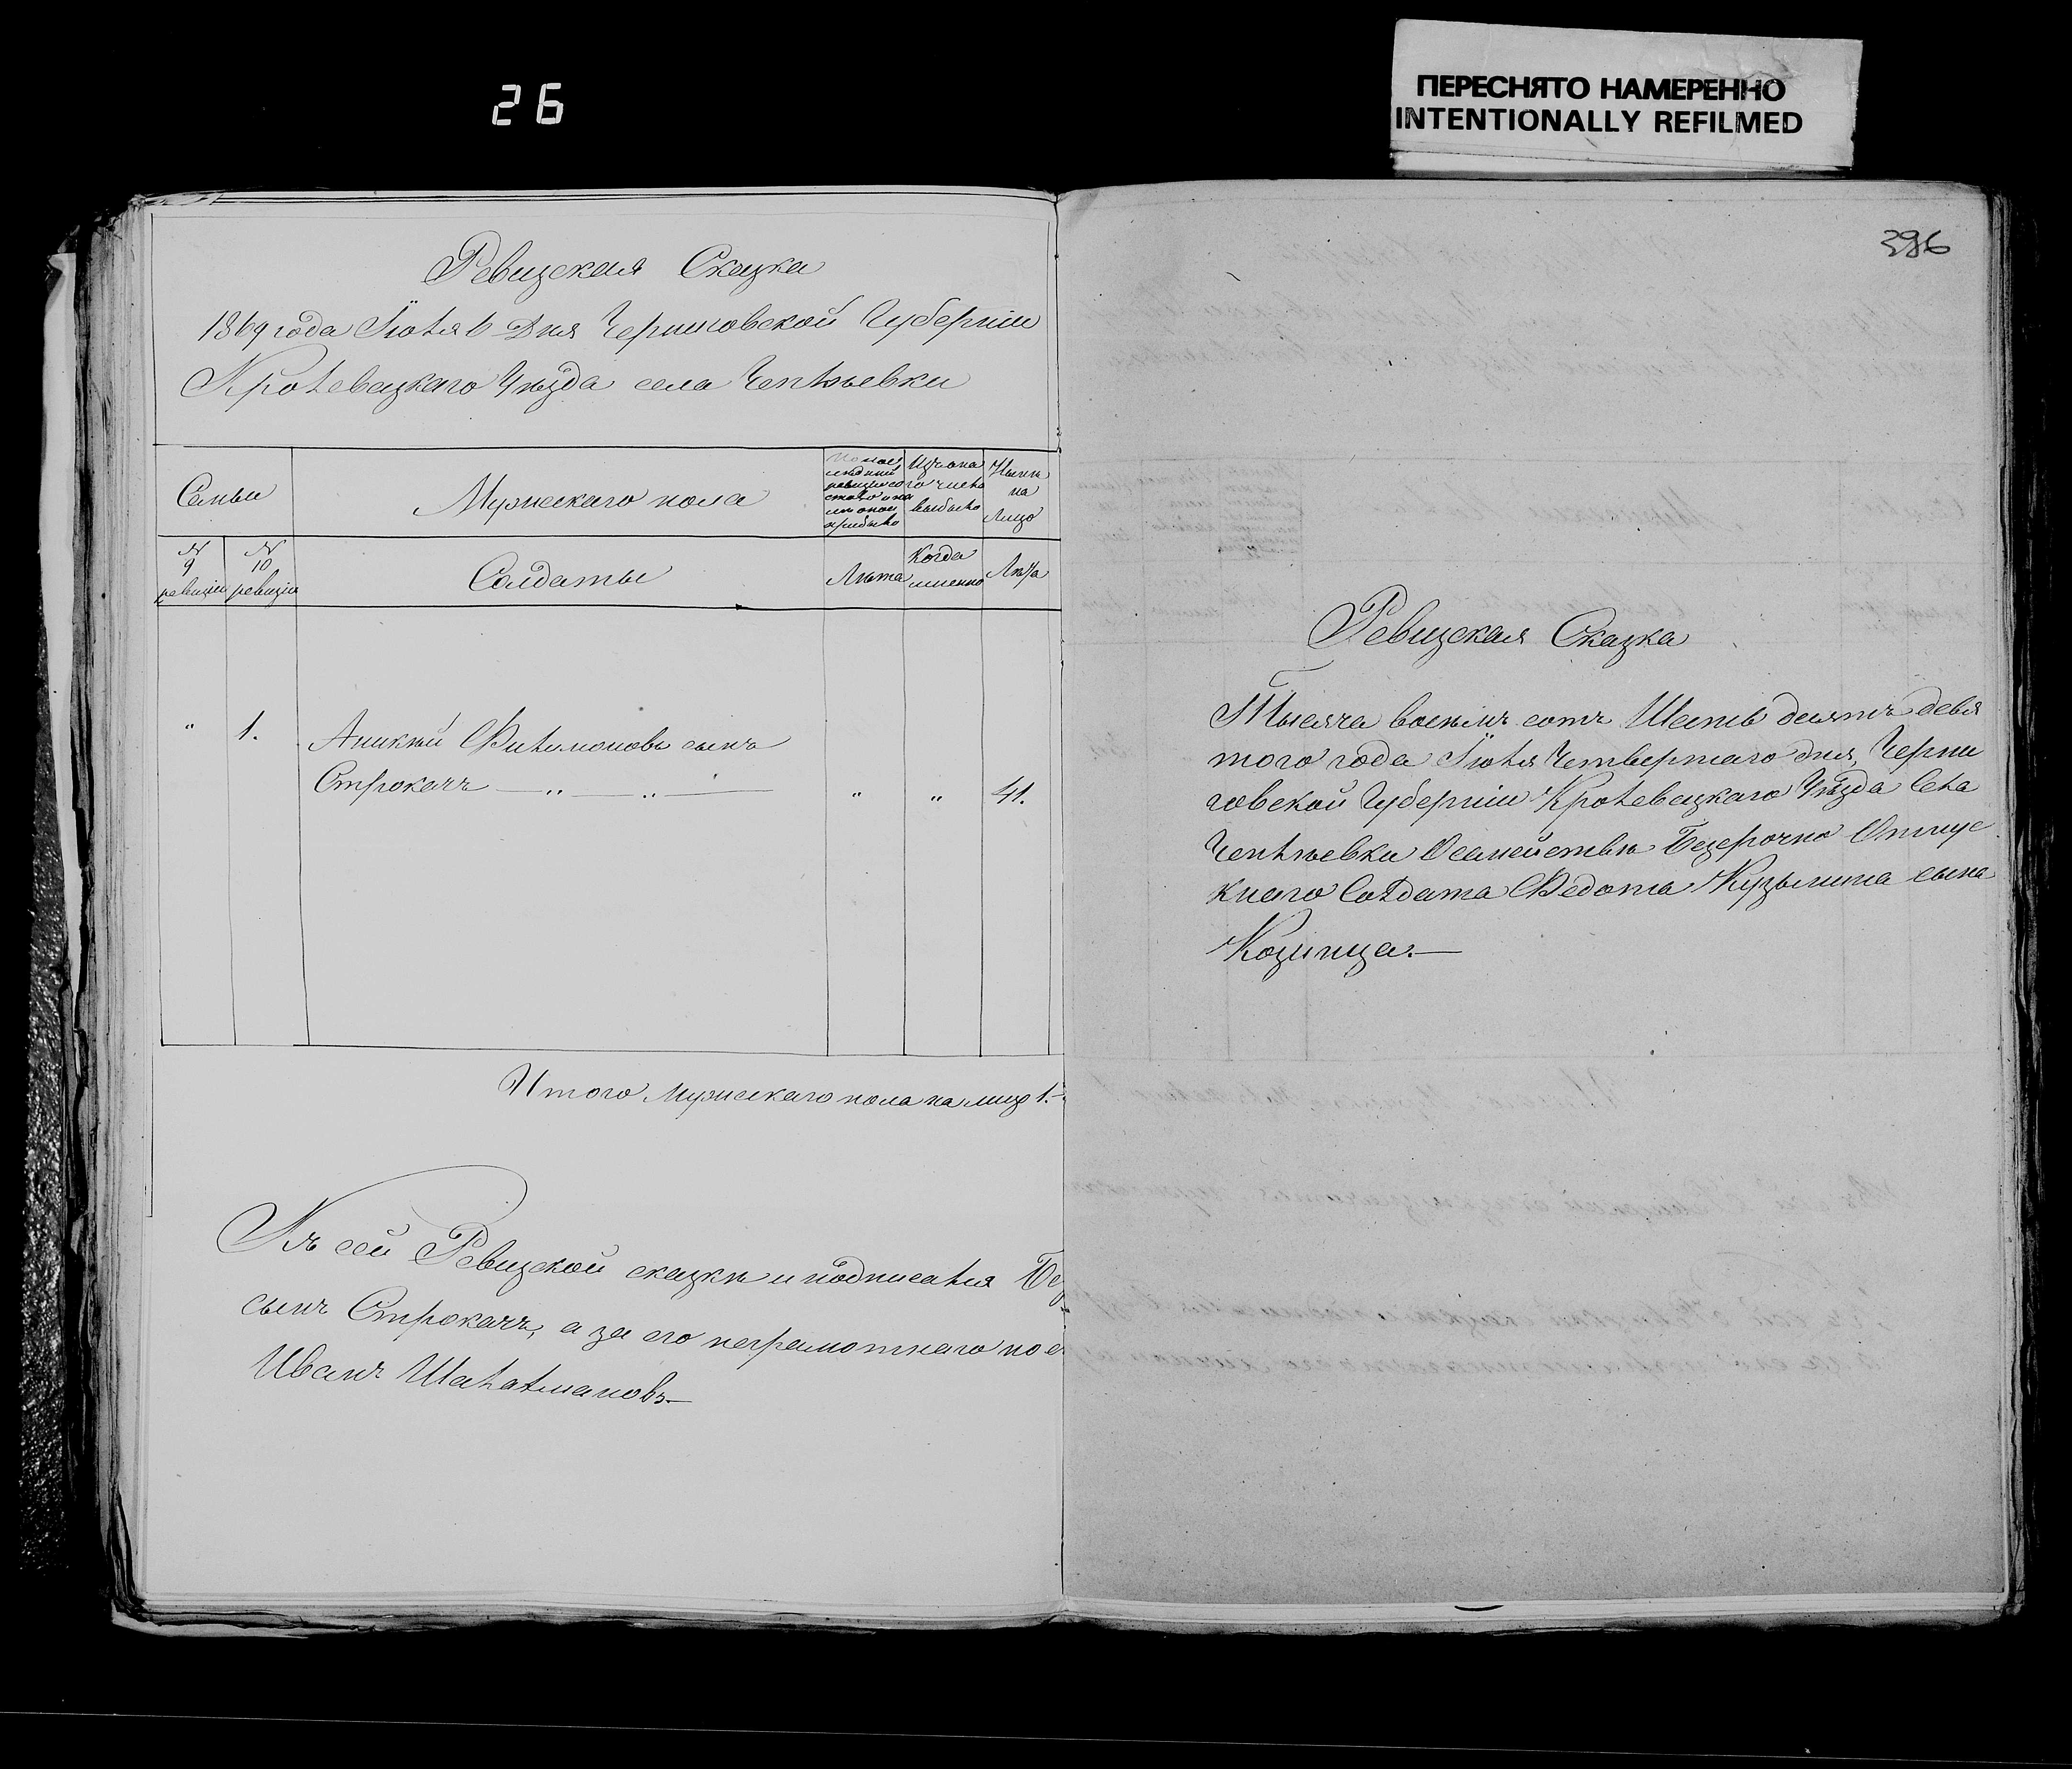 26
ПЕРЕСНЯТО НАМЕРЕННО
INTENTIONALLY REFILMED
Ревизская Сказка
1869 года Іюля 6 Дня Черниговской Губерніи
Кролевецкаго Уѣзда села Чепліевки
Семьи
Мужескаго пола
изъ она
го числа
выбыло
Нынѣ
на
Лицо
№
9
ревизіи
№
10
ревизіи
Солдаты
Лѣта
Когда
именно
Лѣта
" 1. Аникѣй Филимоновъ сынъ
Строкачъ — " — " — " " 41.
Итого Мужескаго пола на лицо 1.
Къ сей Ревизской сказкѣ и подписался Без
сынъ Строкачъ, а за его неграмотнаго по е
Иванъ Шаталмановъ
396
Ревизская Сказка
Тысяча восемь сотъ Шесть десятъ девя
того года Іюля Четвертаго дня, Черни
говской Губерніи Кролевецкаго Уѣзда Села
Чепліевки О семействѣ Безсрочно Отпус
кнаго Солдата Федота Кузьмина сына
Козинца.—